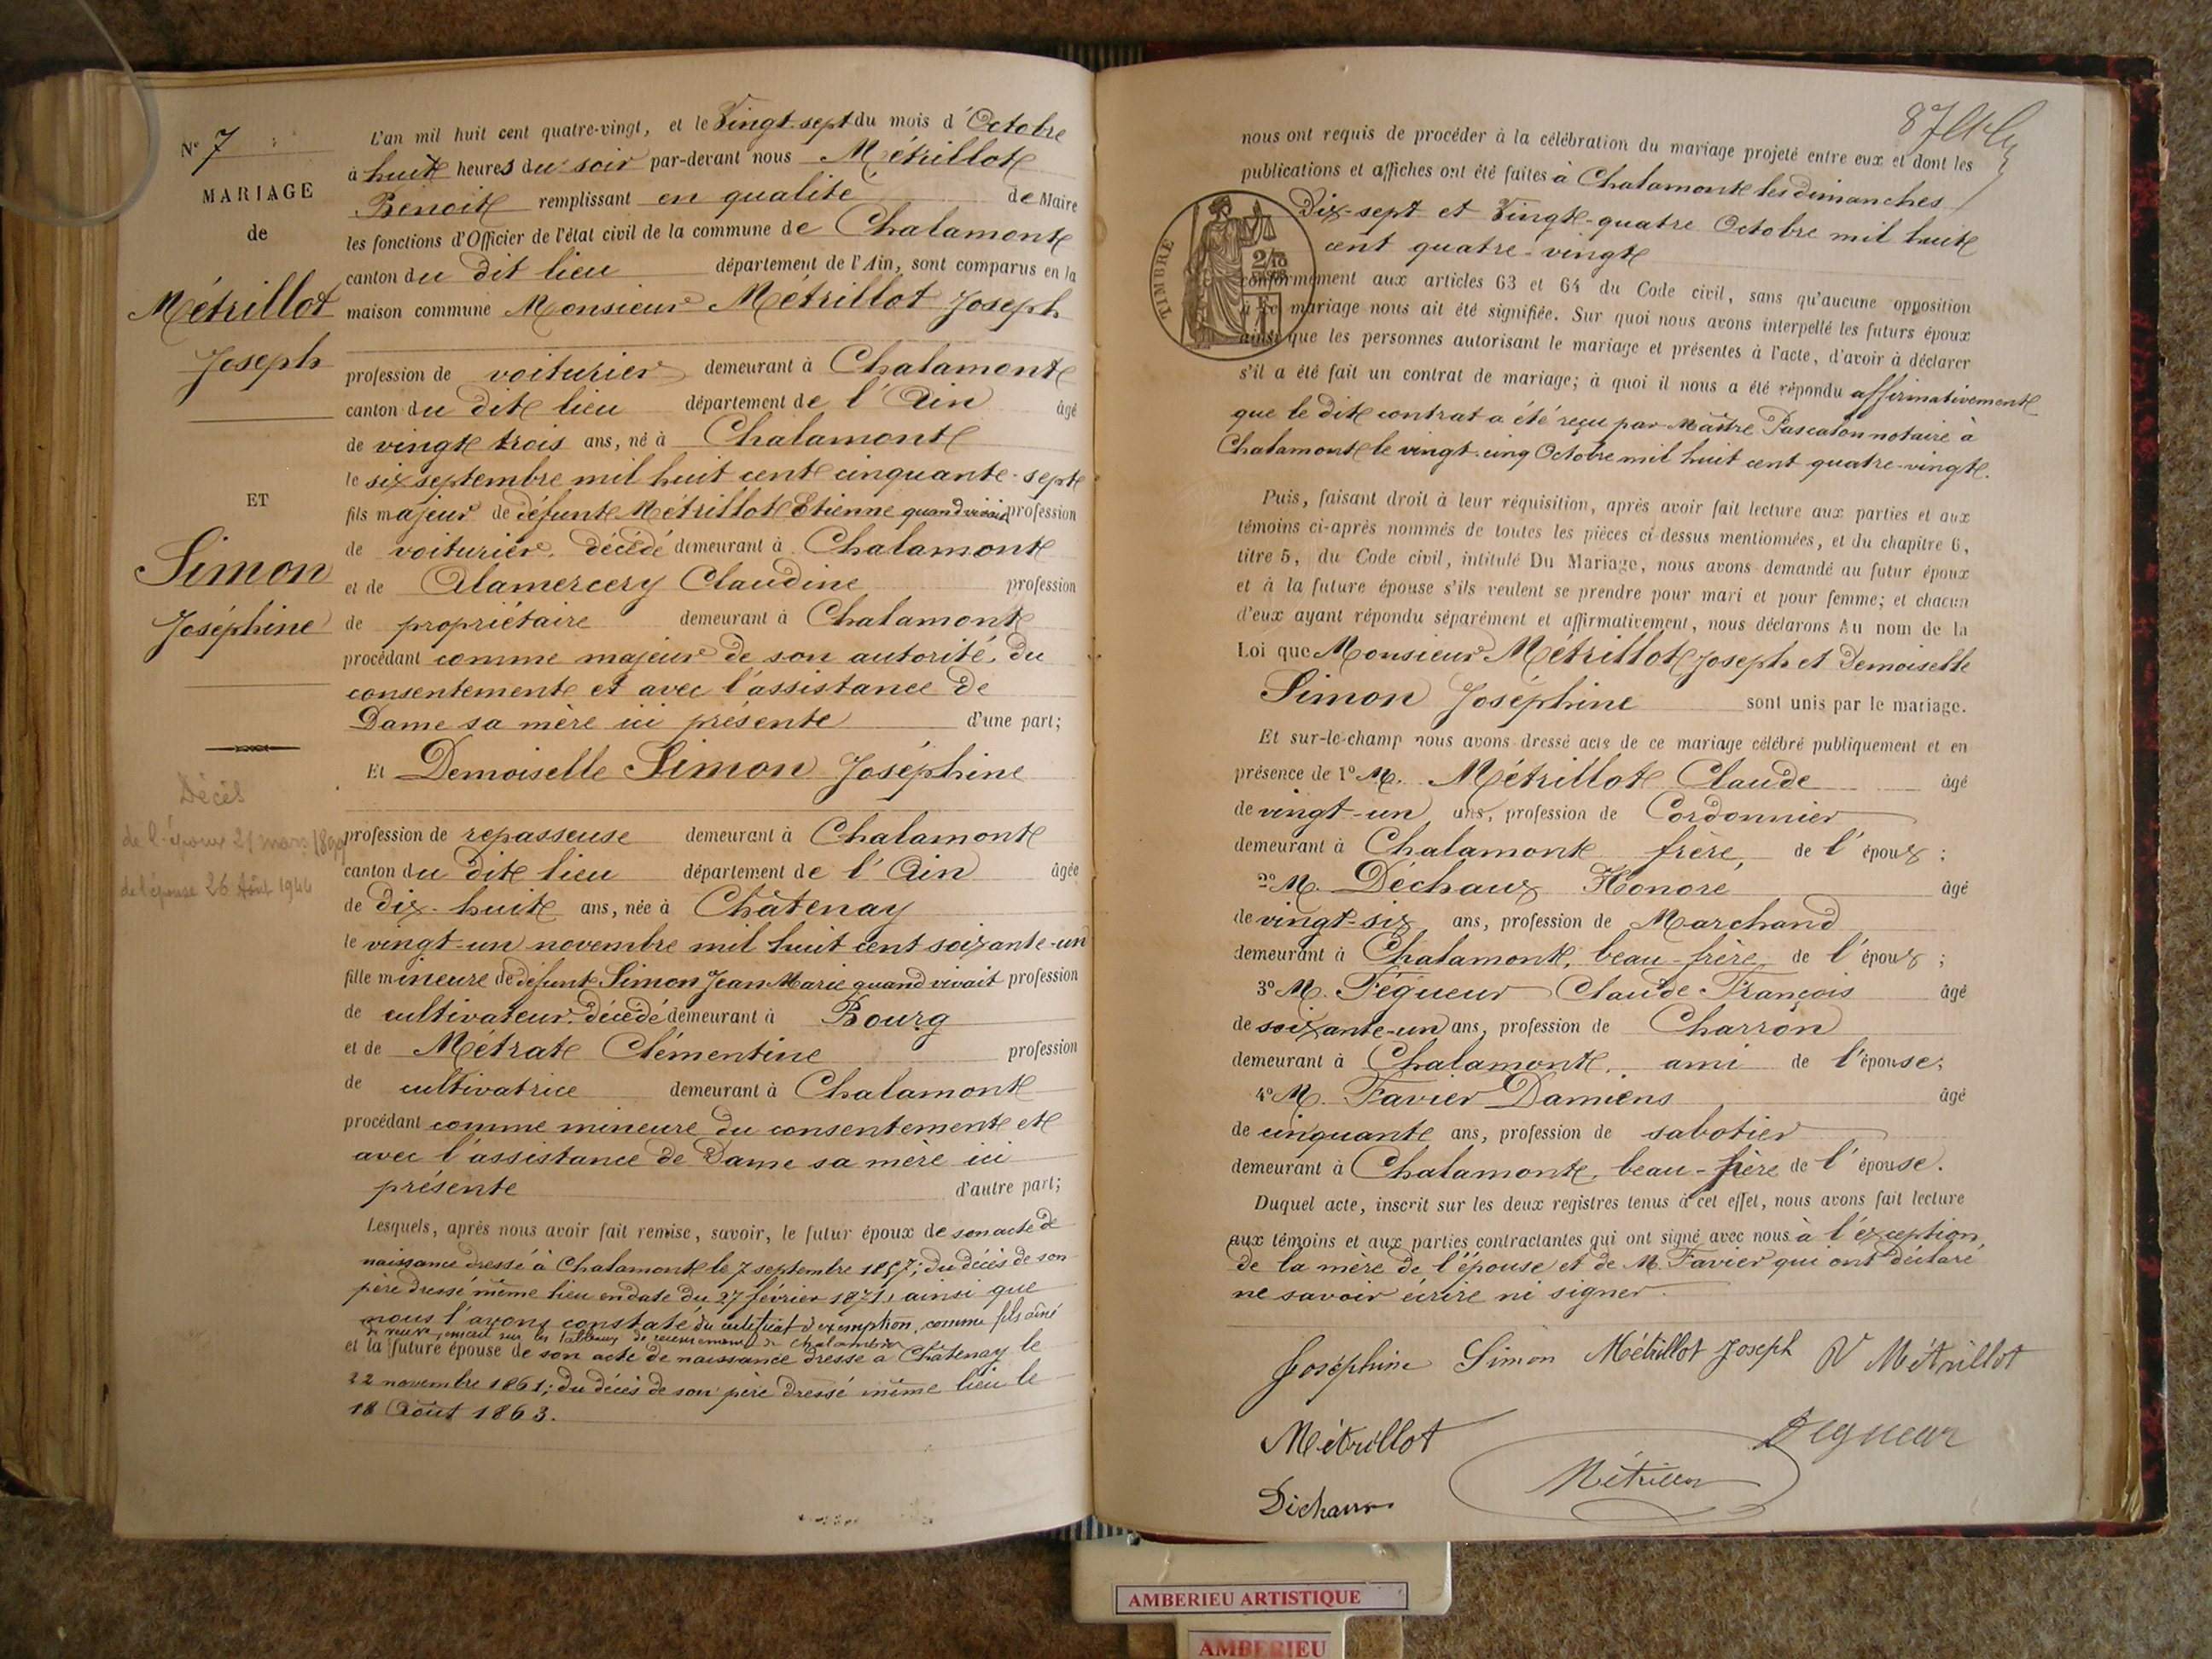 N° 7
MARIAGE
de
Métrillot
Joseph
ET
Simon
Joséphine
Décès
de l'époux 21 mars
de l'épouse 26 Août 1944
L'an mil huit cent quatre-vingt, et le Vingt-sept du mois d'Octobre
à huit heures du soir par-devant nous Métrillot
Benoit remplissant en qualité de Maire
les fonctions d'Officier de l'état civil de la commune de Chalamont
canton du dit lieu département de l'Ain, sont comparus en la
maison commune Monsieur Métrillot Joseph
profession de voiturier demeurant à Chalamont
canton du dit lieu département de l'Ain âgé
de vingt trois ans, né à Chalamont
le six septembre mil huit cent cinquante-sept
fils majeur de défunt Métrillot Etienne quand vivait profession
de voiturier, décédé demeurant à Chalamont
et de Alamercery Claudine profession
de propriétaire demeurant à Chalamont
procédant comme majeur de son autorité, du
consentement et avec l'assistance de
Dame sa mère ici présente d'une part;
Et Demoiselle Simon Joséphine
profession de repasseuse demeurant à Chalamont
canton du dit lieu département de l'Ain âgée
de dix-huit ans, née à Châtenay
le vingt-un novembre mil huit cent soixante-un
fille mineure de défunt Simon Jean Marie quand vivait profession
de cultivateur, décédé demeurant à Bourg
et de Métrat Clémentine profession
de cultivatrice demeurant à Chalamont
procédant comme mineure du consentement et
avec l'assistance de Dame sa mère ici
présente d'autre part;
Lesquels, après nous avoir fait remise, savoir, le futur époux de son acte de
naissance dressé à Chalamont le 7 septembre 1857; du décès de son
père dressé même lieu en date du 27 février 1871, ainsi que
nous l'avons constaté du certificat d'exemption, comme fils aîné
de veuve, inscrit sur les tableaux de recensement de Chalamont
et la future épouse de son acte de naissance dressé à Châtenay le
22 novembre 1861; du décès de son père dressé même lieu le
18 Août 1863.
87
nous ont requis de procéder à la célébration du mariage projeté entre eux et dont les
publications et affiches ont été faites à Chalamont les dimanches
Dix-sept et Vingt-quatre Octobre mil huit
cent quatre-vingt
TIMBRE
conformément aux articles 63 et 64 du Code civil, sans qu'aucune opposition
à ce mariage nous ait été signifiée. Sur quoi nous avons interpellé les futurs époux
ainsi que les personnes autorisant le mariage et présentes à l'acte, d'avoir à déclarer
s'il a été fait un contrat de mariage; à quoi il nous a été répondu affirmativement
que le dit contrat a été reçu par Maître Pascalon notaire à
Chalamont le vingt-cinq Octobre mil huit cent quatre-vingt.
Puis, faisant droit à leur réquisition, après avoir fait lecture aux parties et aux
témoins ci-après nommés de toutes les pièces ci-dessus mentionnées, et du chapitre 6,
titre 5, du Code civil, intitulé Du Mariage, nous avons demandé au futur époux
et à la future épouse s'ils veulent se prendre pour mari et pour femme; et chacun
d'eux ayant répondu séparément et affirmativement, nous déclarons Au nom de la
Loi que Monsieur Métrillot Joseph et Demoiselle
Simon Joséphine sont unis par le mariage.
Et sur-le-champ nous avons dressé acte de ce mariage célébré publiquement et en
présence de 1° M. Métrillot Claude âgé
de vingt-un ans, profession de Cordonnier
demeurant à Chalamont frère, de l'époux;
2° M. Déchaux Honoré âgé
de vingt-six ans, profession de Marchand
demeurant à Chalamont, beau-frère de l'époux;
3° M. Fégueur Claude François âgé
de soixante-un ans, profession de Charron
demeurant à Chalamont, ami de l'épouse;
4° M. Favier Damiens âgé
de cinquante ans, profession de sabotier
demeurant à Chalamont, beau-frère de l'épouse.
Duquel acte, inscrit sur les deux registres tenus à cet effet, nous avons fait lecture
aux témoins et aux parties contractantes qui ont signé avec nous à l'exception
de la mère de l'épouse et de M. Favier qui ont déclaré
ne savoir écrire ni signer.
Joséphine Simon Métrillot Joseph Métrillot
Métrillot Fegueur
Déchaux Métrillot
AMBERIEU ARTISTIQUE
AMBERIEU